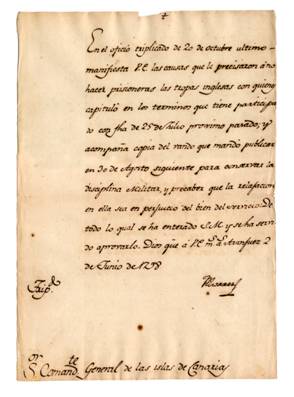 En el oficio triplicado de 20 de octubre ultimo
manifiesta V.E. las causas que le precisaron á no
hacer prisioneras las tropas inglesas con quien
capituló en los terminos que tiene participa
do con fha de 25 de Julio proximo pasado, y
acompaña copia del vando que mandó publicar
en 30 de Agosto siguiente para conservar la
disciplina Militar, y precaber que la relajacion
en ella sea en perjuicio del bien del servicio. De
todo lo qual se ha enterado S.M. y se ha servi
do aprovarlo. Dios gue á V.E. ms. as. Aranjuez 2
de Junio de 1798
Trip.do
Sor. Comandte. General de las islas de Canaria